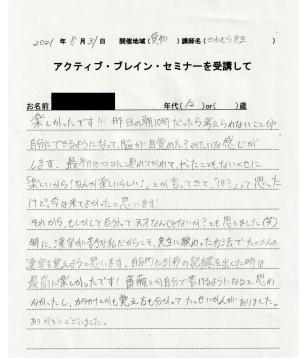 2021年8月31日 開催地域(愛知)講師名(さわむら先生)
アクティブ・ブレイン・セミナーを受講して
お名前 年代(12)or( )歳
楽しかったです!!! 昨日の朝10時だったら考えられないことが
自分にできるようになって、脳が目覚めた?みたいな感じが
します。最初はママに連れてかれて、やったこともないくせに
「楽しいから!なんか楽しいらしい!」とか言ってきて、「は?」って思った
けど、今は来てよかったと思います!
それから、もしかして自分って天才なんじゃないか?とも思いました(笑)
特に、漢字が苦手な私だからこそ、先生に教わった方法でたくさんの
漢字を覚えようと思います。自分が 秒の記録を出した時は
最高に楽しかったです!薔薇とか自分で書けるようになると思わ
なかったし、 覚え方も分かってたっせいかんがありました。
ありがとうございました。